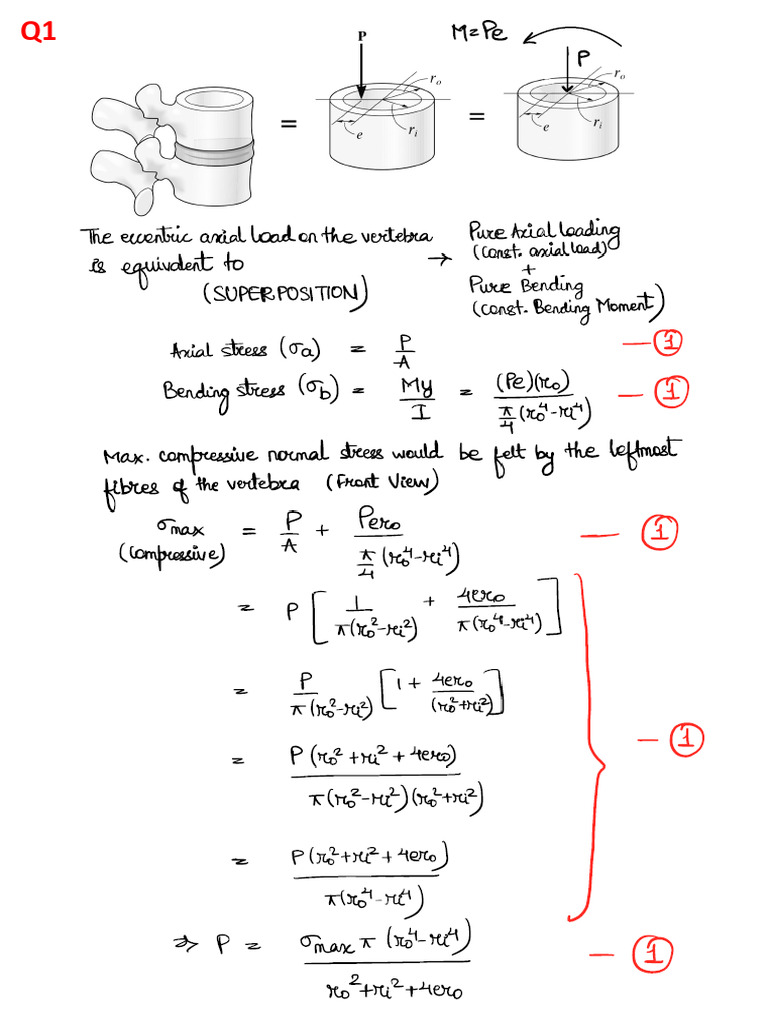 Q1
P
M=Pe
P
r_o
r_o
=
=
e
r_i
e
r_i
The eccentric axial load on the vertebra
is equivalent to
(SUPERPOSITION)
→ Pure Axial Loading
(const. axial load)
+
Pure Bending
(const. Bending Moment)
Axial stress (σa) = P/A — ①
Bending stress (σb) = My/I = (Pe)(ro) / (π/4 (ro⁴-ri⁴)) — ①
Max. compressive normal stress would be felt by the leftmost
fibres of the vertebra (Front View)
σmax (compressive) = P/A + Pero / (π/4 (ro⁴-ri⁴)) — ①
= P [ 1/(π(ro²-ri²)) + 4ero/(π(ro⁴-ri⁴)) ]
= P/(π(ro²-ri²)) [ 1 + 4ero/(ro²+ri²) ]
— ①
= P(ro²+ri²+4ero) / (π(ro²-ri²)(ro²+ri²))
= P(ro²+ri²+4ero) / (π(ro⁴-ri⁴))
⇒ P = σmax π (ro⁴-ri⁴) / (ro²+ri²+4ero) — ①